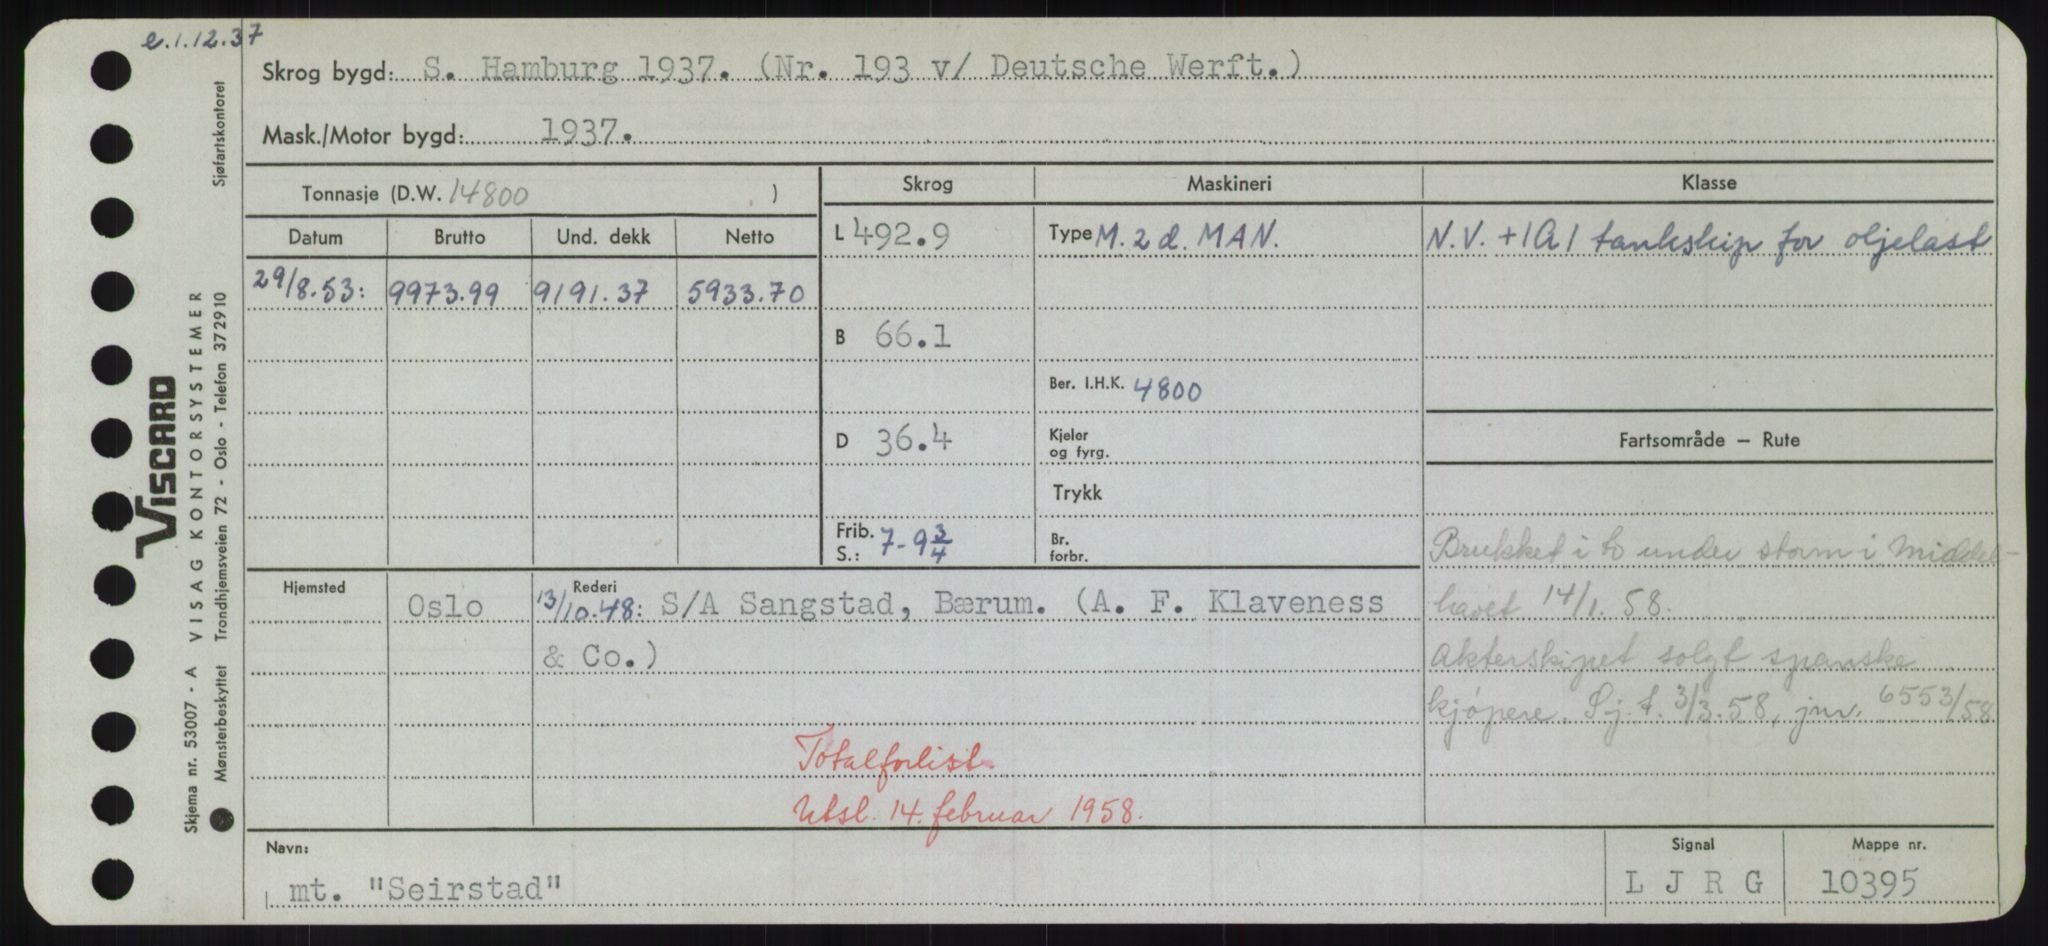 e.1.12.37
Skrog bygd: S. Hamburg 1937. (Nr. 193 v/ Deutsche Werft.)
Mask./Motor bygd: 1937.
Tonnasje (D.W. 14800 )
Skrog
Maskineri
Klasse
Datum Brutto Und. dekk Netto
L 492.9
Type M. 2 d. MAN.
N.V. +1A1 tankskip for oljelast
29/8.53: 9973.99 9191.37 5933.70
B 66.1
Ber. I.H.K. 4800
D 36.4
Kjeler
og fyrg.
Fartsområde – Rute
Trykk
Frib.
S.: 7-9 3/4
Br.
forbr.
Brukket i to under storm i Middel-
havet 14/1.58.
Akterskipet solgt spanske
kjøpere. Sj.f. 3/3.58, jnr. 6553/58
Hjemsted
Oslo
Rederi
13/10.48: S/A Sangstad, Bærum. (A. F. Klaveness
& Co.)
Totalforlist.
Utsl. 14. februar 1958.
Navn:
mt. "Seirstad"
Signal
L J R G
Mappe nr.
10395
Skjema nr. 53007 - A VISAG KONTORSYSTEMER
VISCARD
Mønsterbeskyttet Trondhjemsveien 72 - Oslo - Telefon 372910 Sjøfartskontoret